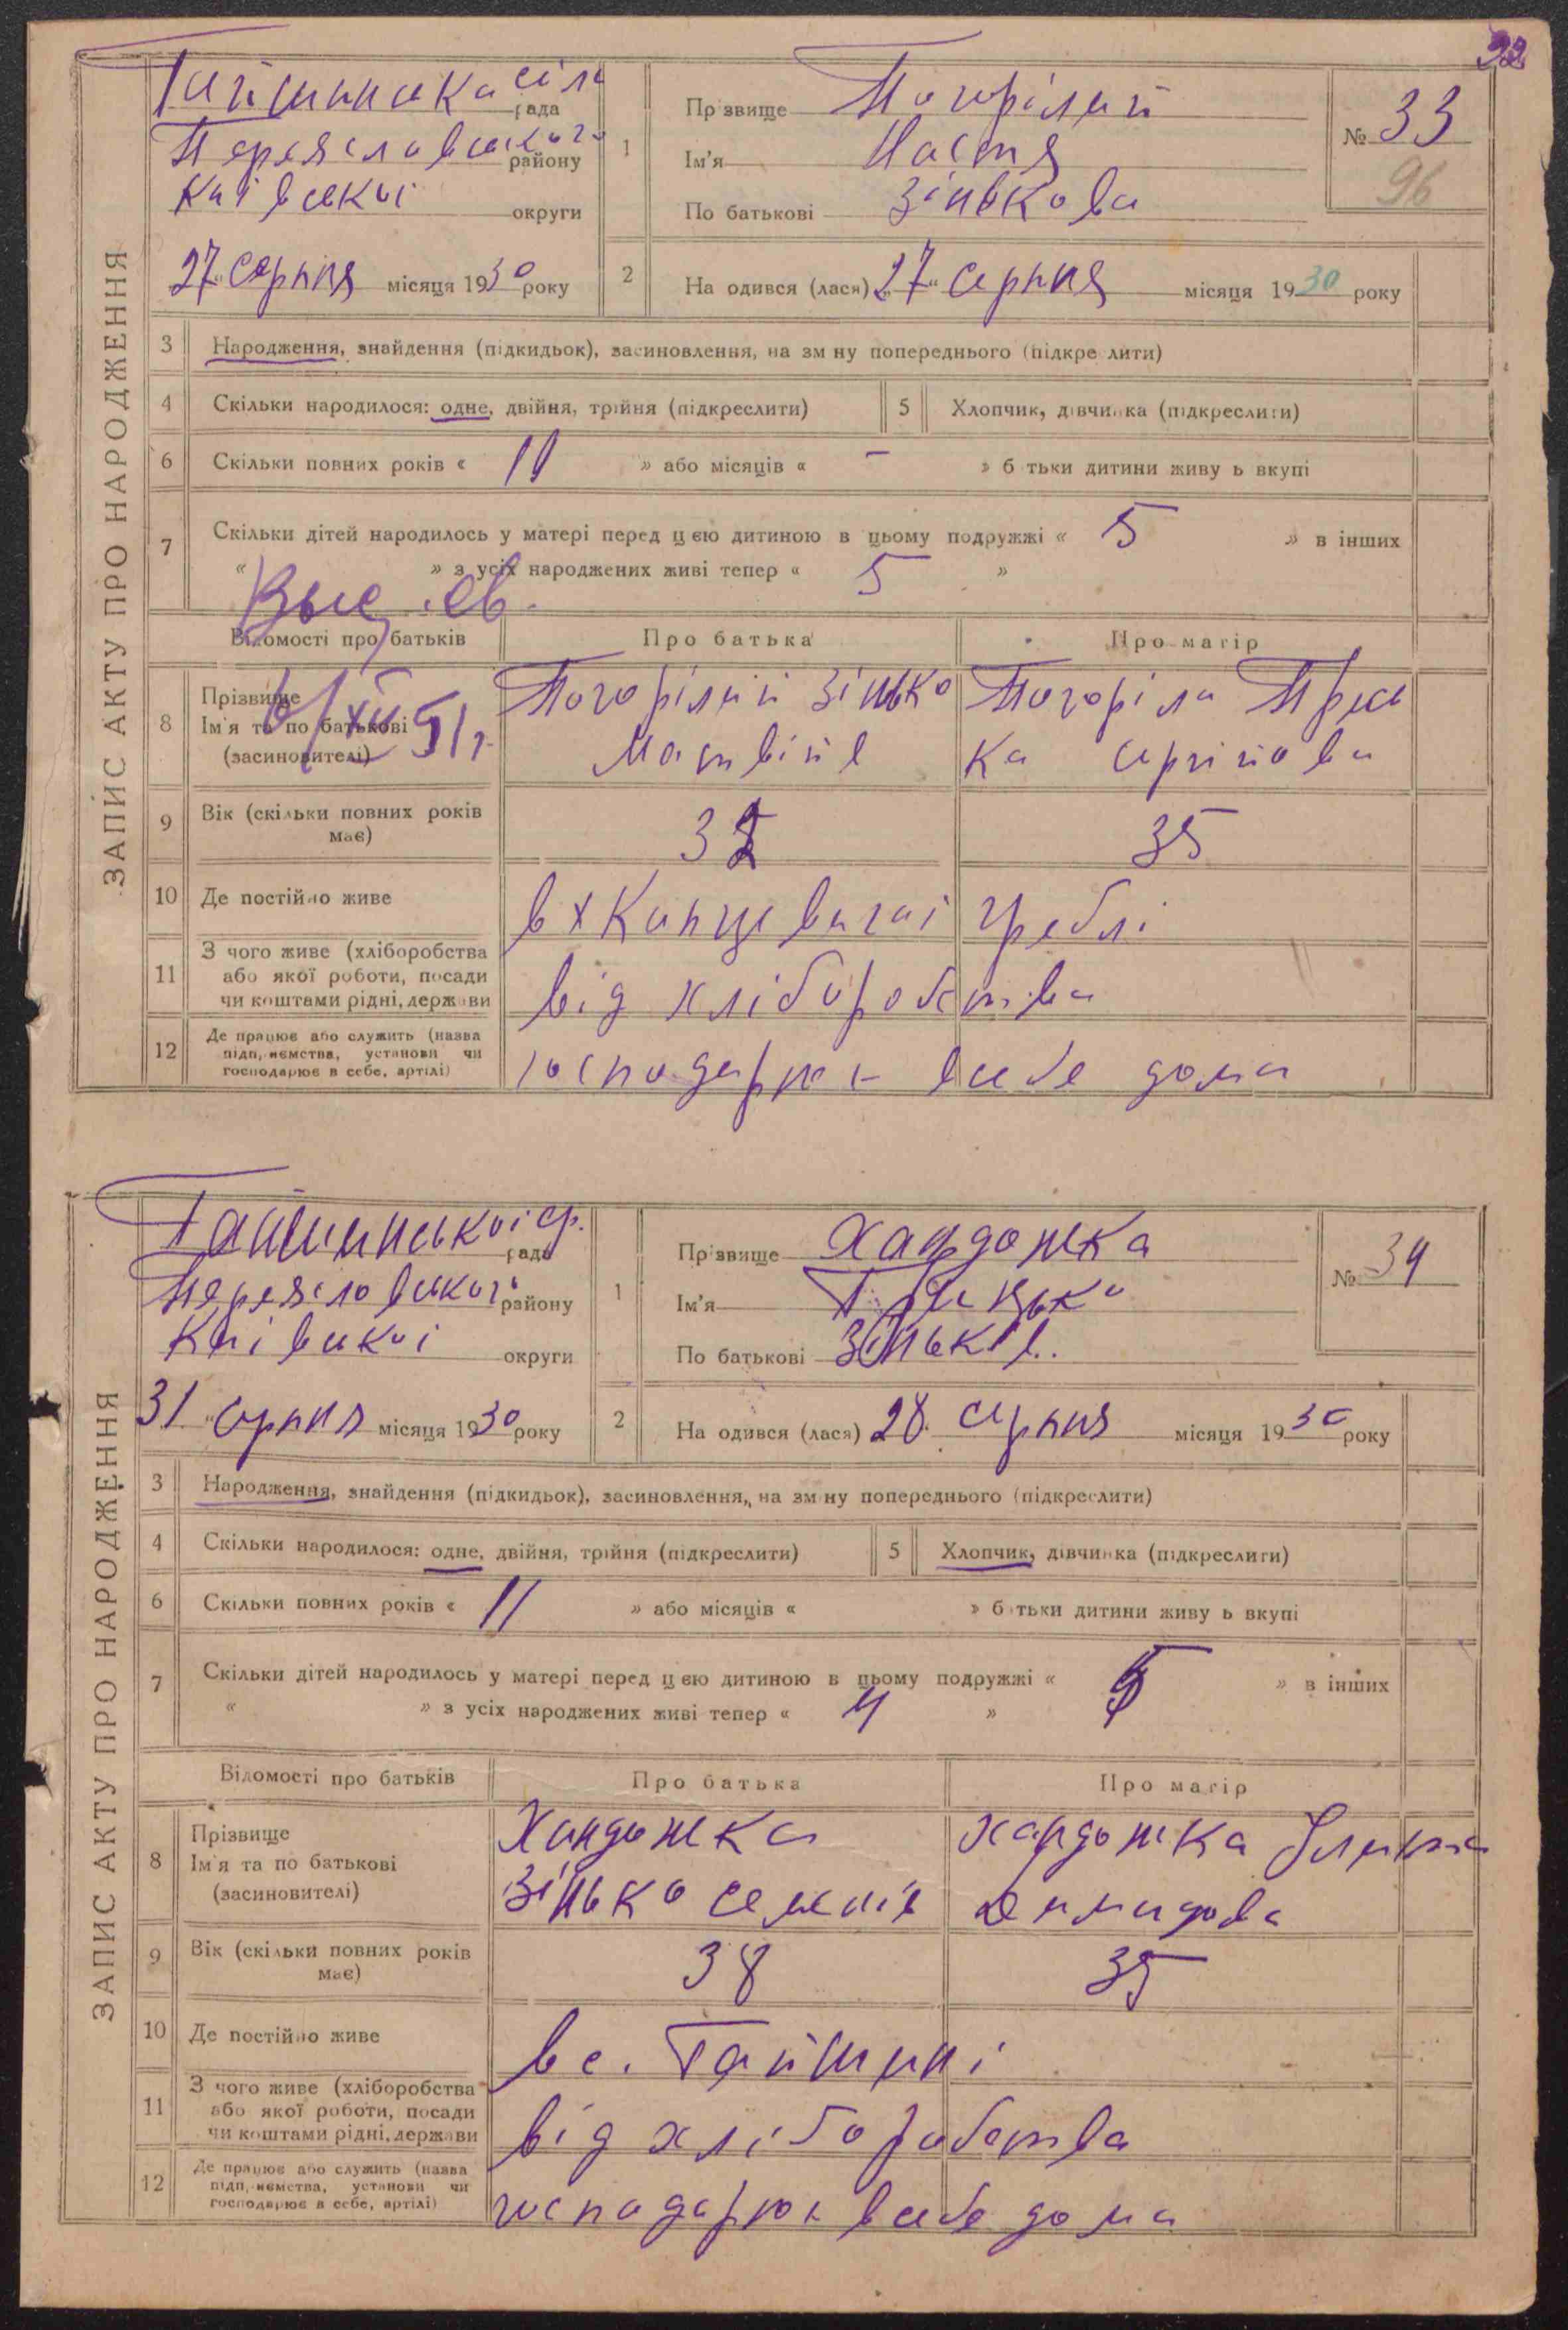 32
ЗАПИС АКТУ ПРО НАРОДЖЕННЯ
Гайшинська сіль
рада
Переяславського району
Київської округи
„27“ серпня місяця 1930 року
1 Прізвище Погорілий
Ім'я Настя
По батькові Зінькова
№ 33
96
2 На одився (лася) „27“ серпня місяця 1930 року
3 Народження, знайдення (підкидьок), засиновлення, на зм ну попереднього (підкре лити)
4 Скільки народилося: одне, двійня, трійня (підкреслити) 5 Хлопчик, дівчинка (підкреслити)
6 Скільки повних років « » або місяців « - » б тьки дитини живу ь вкупі
7 Скільки дітей народилось у матері перед ц ею дитиною в цьому подружжі « 5 » в інших
« » з усіх народжених живі тепер « 5 »
Відомості про батьків Про батька Про матір
8 Прізвище
Ім'я та по батькові
(засиновителі)
Погорілий Зінько
Матвіів
Погоріла Прись
ка Сергійова
9 Вік (скільки повних років
має)
35
10 Де постійно живе
в х Канцевичаі греблі
11 З чого живе (хліборобства
або якої роботи, посади
чи коштами рідні, держави
від хліборобства
12 Де працює або служить (назва
підприємства, установи чи
господарює в себе, артілі)
господарює в себе дома
ЗАПИС АКТУ ПРО НАРОДЖЕННЯ
Гайшинської ср.
рада
Переяславського району
Київської округи
31 „ серпня місяця 1930 року
1 Прізвище Хандожка
Ім'я Грицько
По батькові Зіньків.
№ 34
2 На одився (лася) 28. серпня місяця 1930 року
3 Народження, знайдення (підкидьок), засиновлення, на зм ну попереднього (підкреслити)
4 Скільки народилося: одне, двійня, трійня (підкреслити) 5 Хлопчик, дівчинка (підкреслити)
6 Скільки повних років « 11 » або місяців « » б тьки дитини живу ь вкупі
7 Скільки дітей народилось у матері перед ц ею дитиною в цьому подружжі « » в інших
« » з усіх народжених живі тепер « 4 »
Відомості про батьків Про батька Про матір
8 Прізвище
Ім'я та по батькові
(засиновителі)
Хандожка
Зінько Семенів
Хандожка Улита
Демидова
9 Вік (скільки повних років
має)
38 35
10 Де постійно живе
в с. Гайшині
11 З чого живе (хліборобства
або якої роботи, посади
чи коштами рідні, держави
від хліборобства
12 Де працює або служить (назва
підприємства, установи чи
господарює в себе, артілі)
господарює в себе дома